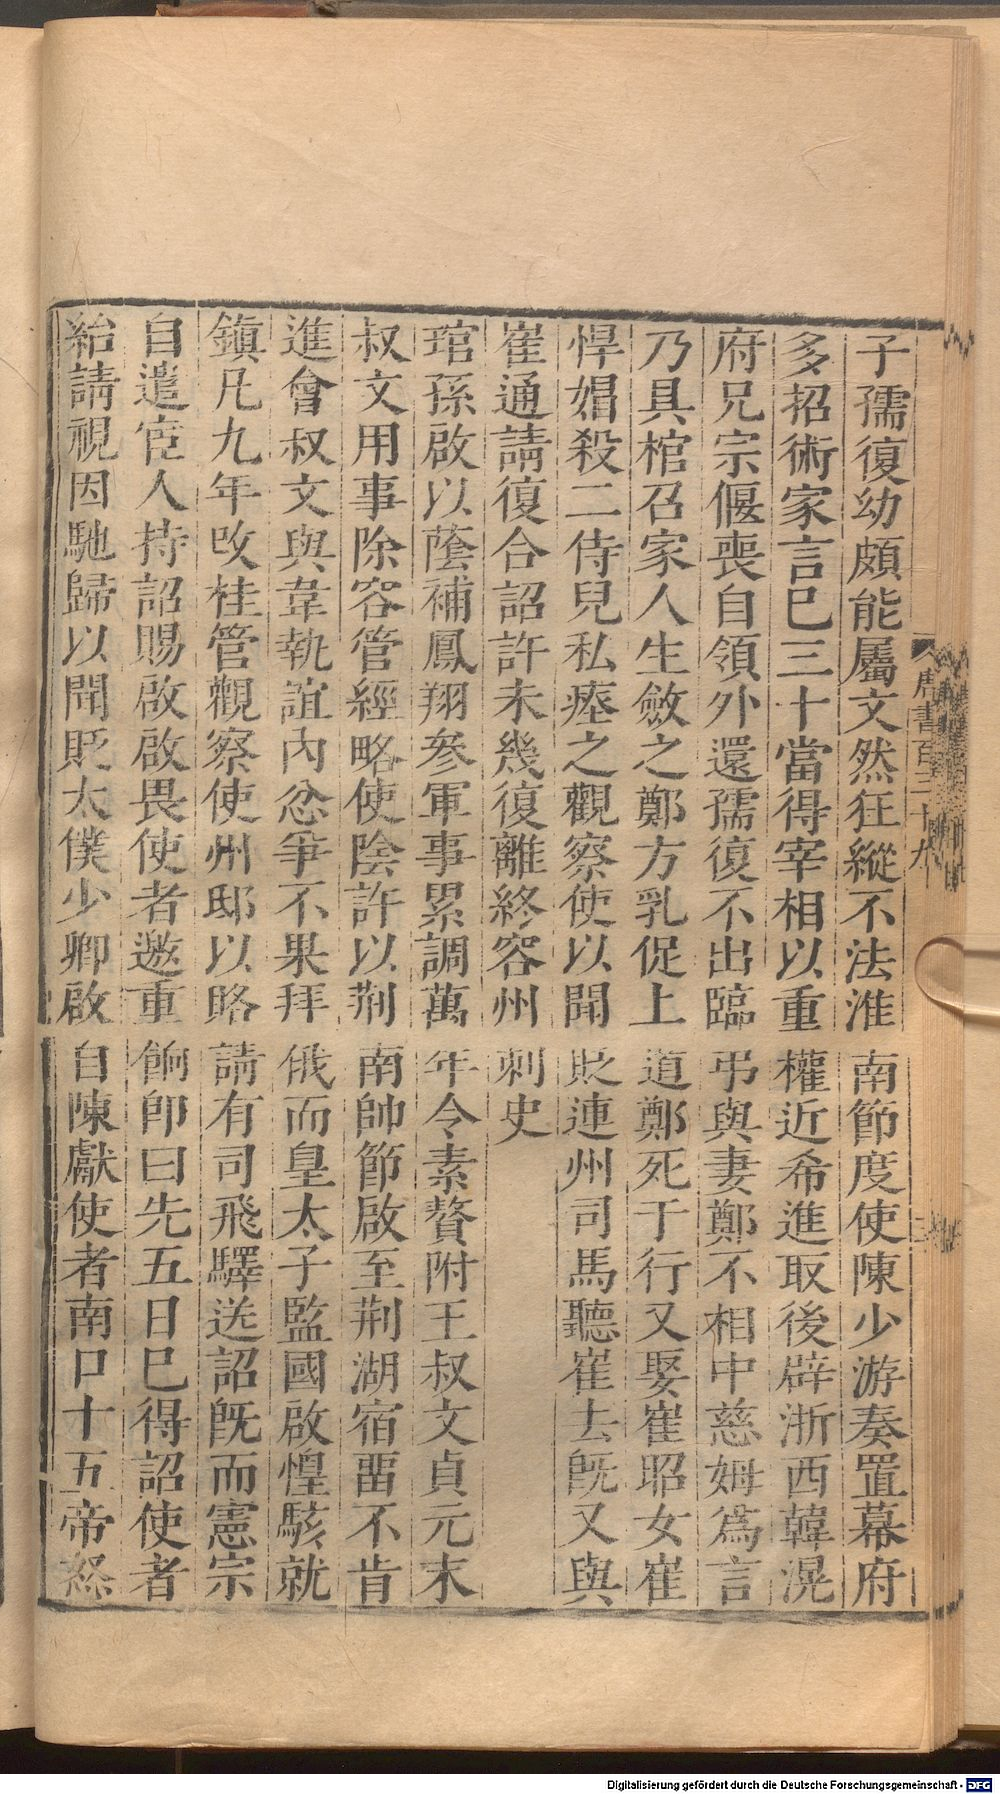 子孺復幼頗能屬文然狂縱不法淮南節度使陳少游奏置幕府
多招術家言巳三十當得宰相以重權近希進取後辟浙西韓滉
府兄宗偃喪自領外還孺復不出臨弔與妻鄭不相中慈姆爲言
乃具棺召家人生斂之鄭方乳促上道鄭死于行又娶崔昭女崔
悍娼殺二侍兒私瘞之觀察使以聞貶連州司馬聽崔去旣又與
崔通請復合詔許未幾復離終容州刺史
琯孫啟以蔭補鳳翔參軍事累調萬年令素贅附王叔文貞元末
叔文用事除容管經略使陰許以荆南帥節啟至荆湖宿畱不肯
進會叔文與韋執誼內忿爭不果拜俄而皇太子監國啟惶駭就
鎮凡九年改桂管觀察使州邸以賂請有司飛驛送詔旣而憲宗
自遣宦人持詔賜啟啟畏使者邀重餉卽曰先五日巳得詔使者
紿請視因馳歸以聞貶太僕少卿啟自陳獻使者南口十五帝怒
唐書百三十九
Digitalisierung gefördert durch die Deutsche Forschungsgemeinschaft - DFG